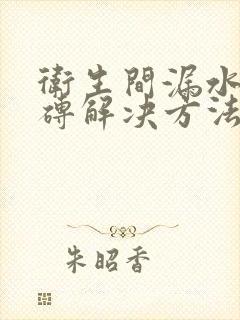 衛生間漏水
磚解决方法
朱昭香